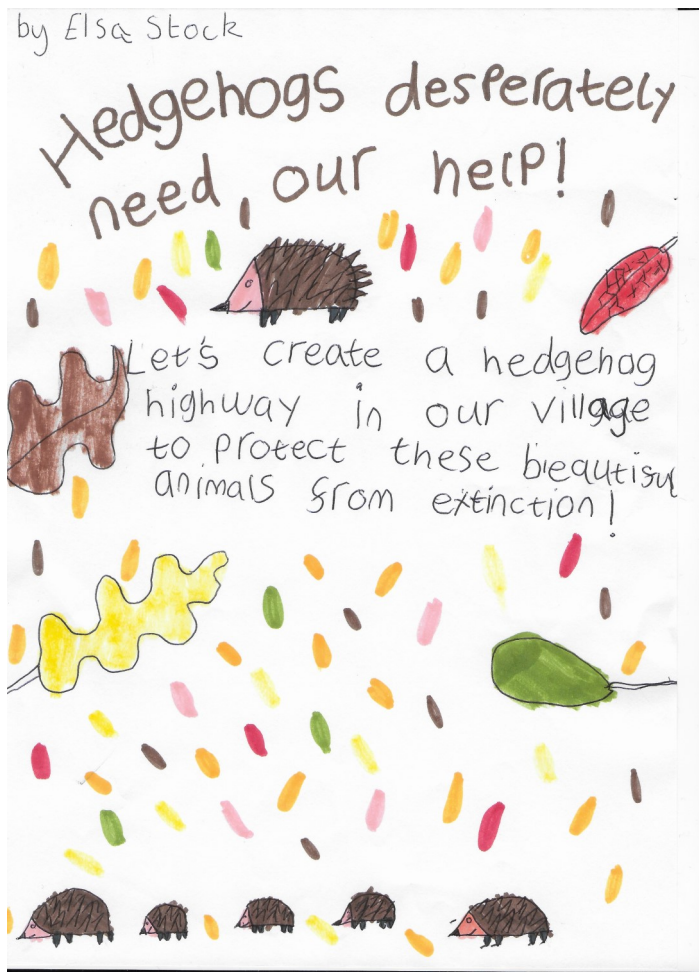 by Elsa Stock
Hedgehogs desperately
need our help!
Let's create a hedgehog
highway in our village
to protect these bieautiful
animals from extinction!